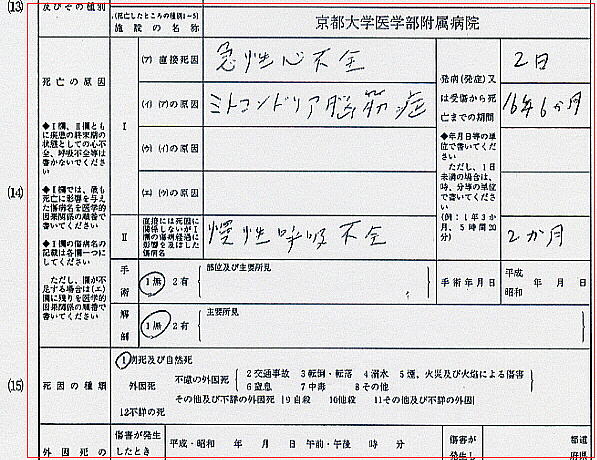 (13)
及びその種別
(死亡したところの種別1~5)
施設の名称
京都大学医学部附属病院
(14)
死亡の原因
◆Ⅰ欄、Ⅱ欄ともに疾患の終末期の状態としての心不全、呼吸不全等は書かないでください
◆Ⅰ欄では、最も死亡に影響を与えた傷病名を医学的因果関係の順番で書いてください
◆Ⅰ欄の傷病名の記載は各欄一つにしてください
ただし、欄が不足する場合は(エ)欄に残りを医学的因果関係の順番で書いてください
Ⅰ
(ア) 直接死因
急性心不全
(イ) (ア)の原因
ミトコンドリア脳筋症
(ウ) (イ)の原因
(エ) (ウ)の原因
Ⅱ
直接には死因に関係しないがⅠ欄の傷病経過に影響を及ぼした傷病名
慢性呼吸不全
発病(発症)又は受傷から死亡までの期間
◆年月日等の単位で書いてください
ただし、1日未満の場合は、時、分等の単位で書いてください
(例:1年3か月、5時間20分)
2日
16年6か月
2か月
手術
1無 2有
部位及び主要所見
手術年月日
平成
昭和
年 月 日
解剖
1無 2有
主要所見
(15)
死因の種類
1病死及び自然死
外因死
不慮の外因死
2交通事故 3転倒・転落 4溺水 5煙、火災及び火焔による傷害
6窒息 7中毒 8その他
その他及び不詳の外因死
9自殺 10他殺 11その他及び不詳の外因
12不詳の死
外因死の
傷害が発生したとき
平成・昭和 年 月 日 午前・午後 時 分
傷害が発生し
都道
府県